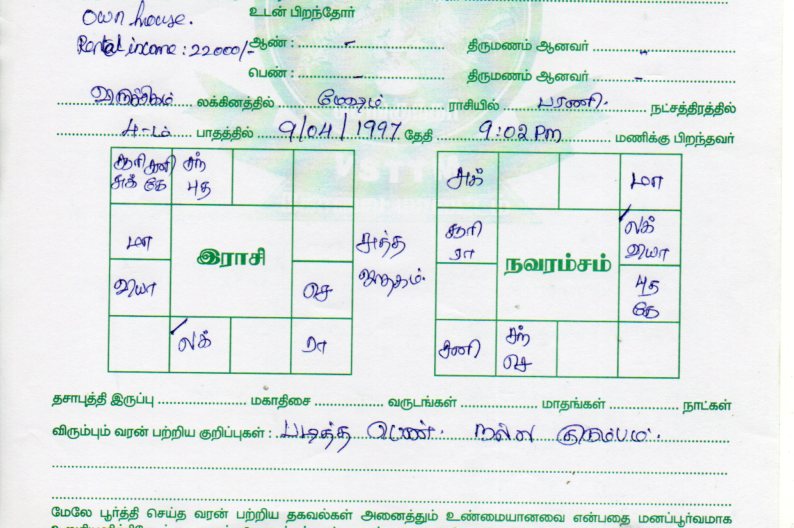 own house.
உடன் பிறந்தோர்
Rental income : 22000/-
ஆண் : - திருமணம் ஆனவர் -
பெண் : - திருமணம் ஆனவர் -
விருச்சிகம் லக்கினத்தில் மேஷம் ராசியில் பரணி. நட்சத்திரத்தில்
4-ம் பாதத்தில் 9/04/1997 தேதி 9:02 Pm மணிக்கு பிறந்தவர்
சூரி சனி சுக் கே
சந் புத
மா
இராசி
வியா
செ
லக்
ரா
சுத்த ஜாதகம்.
சுக்
மா
சூரி ரா
நவரம்சம்
லக் வியா
புத கே
சனி
சந் செ
தசாபுத்தி இருப்பு மகாதிசை வருடங்கள் மாதங்கள் நாட்கள்
விரும்பும் வரன் பற்றிய குறிப்புகள் : படித்த பெண். நல்ல குடும்பம்.
மேலே பூர்த்தி செய்த வரன் பற்றிய தகவல்கள் அனைத்தும் உண்மையானவை என்பதை மனப்பூர்வமாக